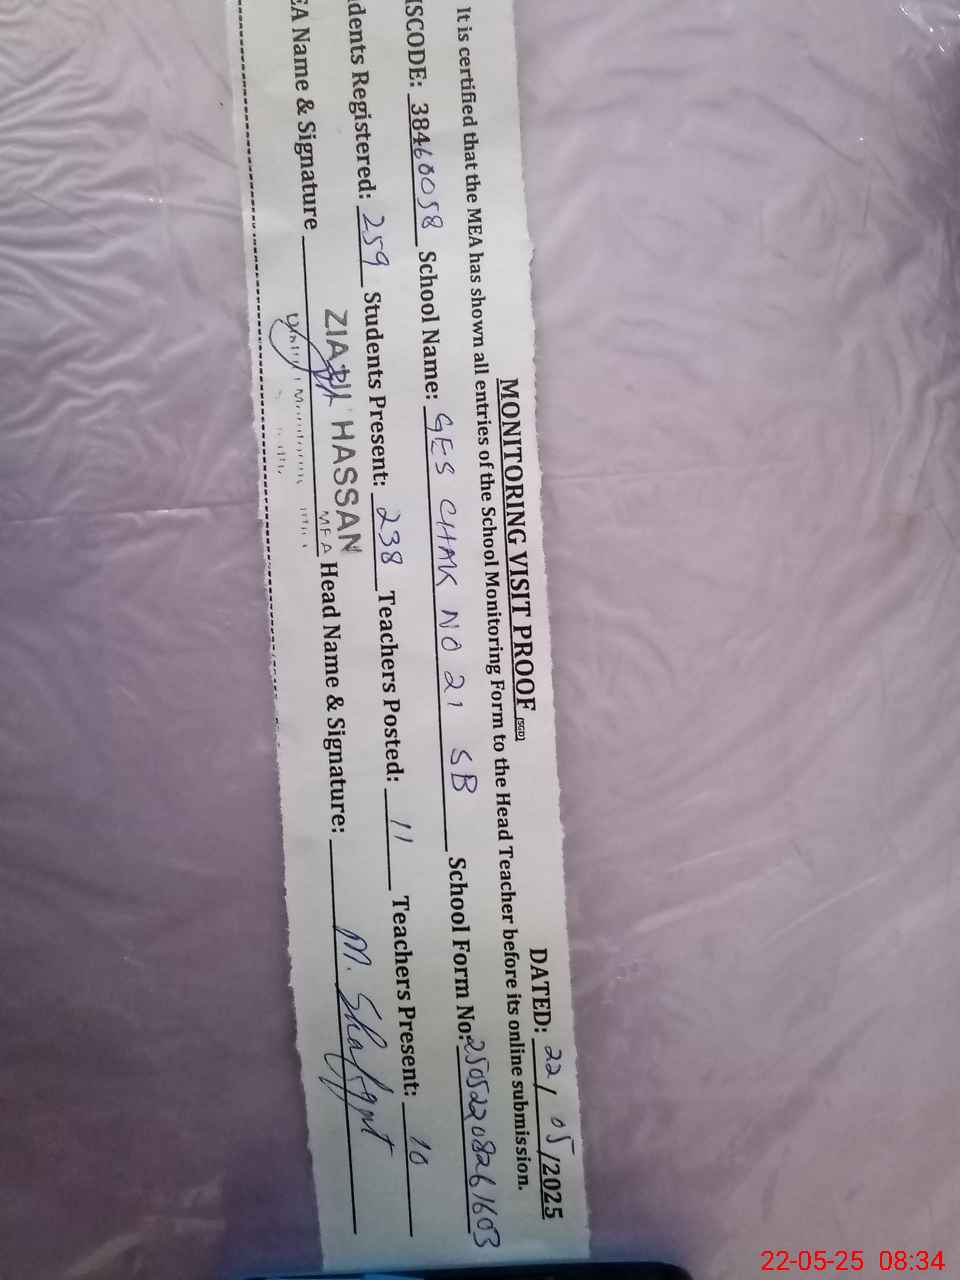 MONITORING VISIT PROOF [SGD] DATED: 22/05/2025
It is certified that the MEA has shown all entries of the School Monitoring Form to the Head Teacher before its online submission.
ISCODE: 38460058 School Name: GES CHAK NO 21 SB School Form No: 25052208261603
dents Registered: 259 Students Present: 238 Teachers Posted: 11 Teachers Present: 10
EA Name & Signature Head Name & Signature: M. Shafqat
HASSAN
MEA
22-05-25 08:34